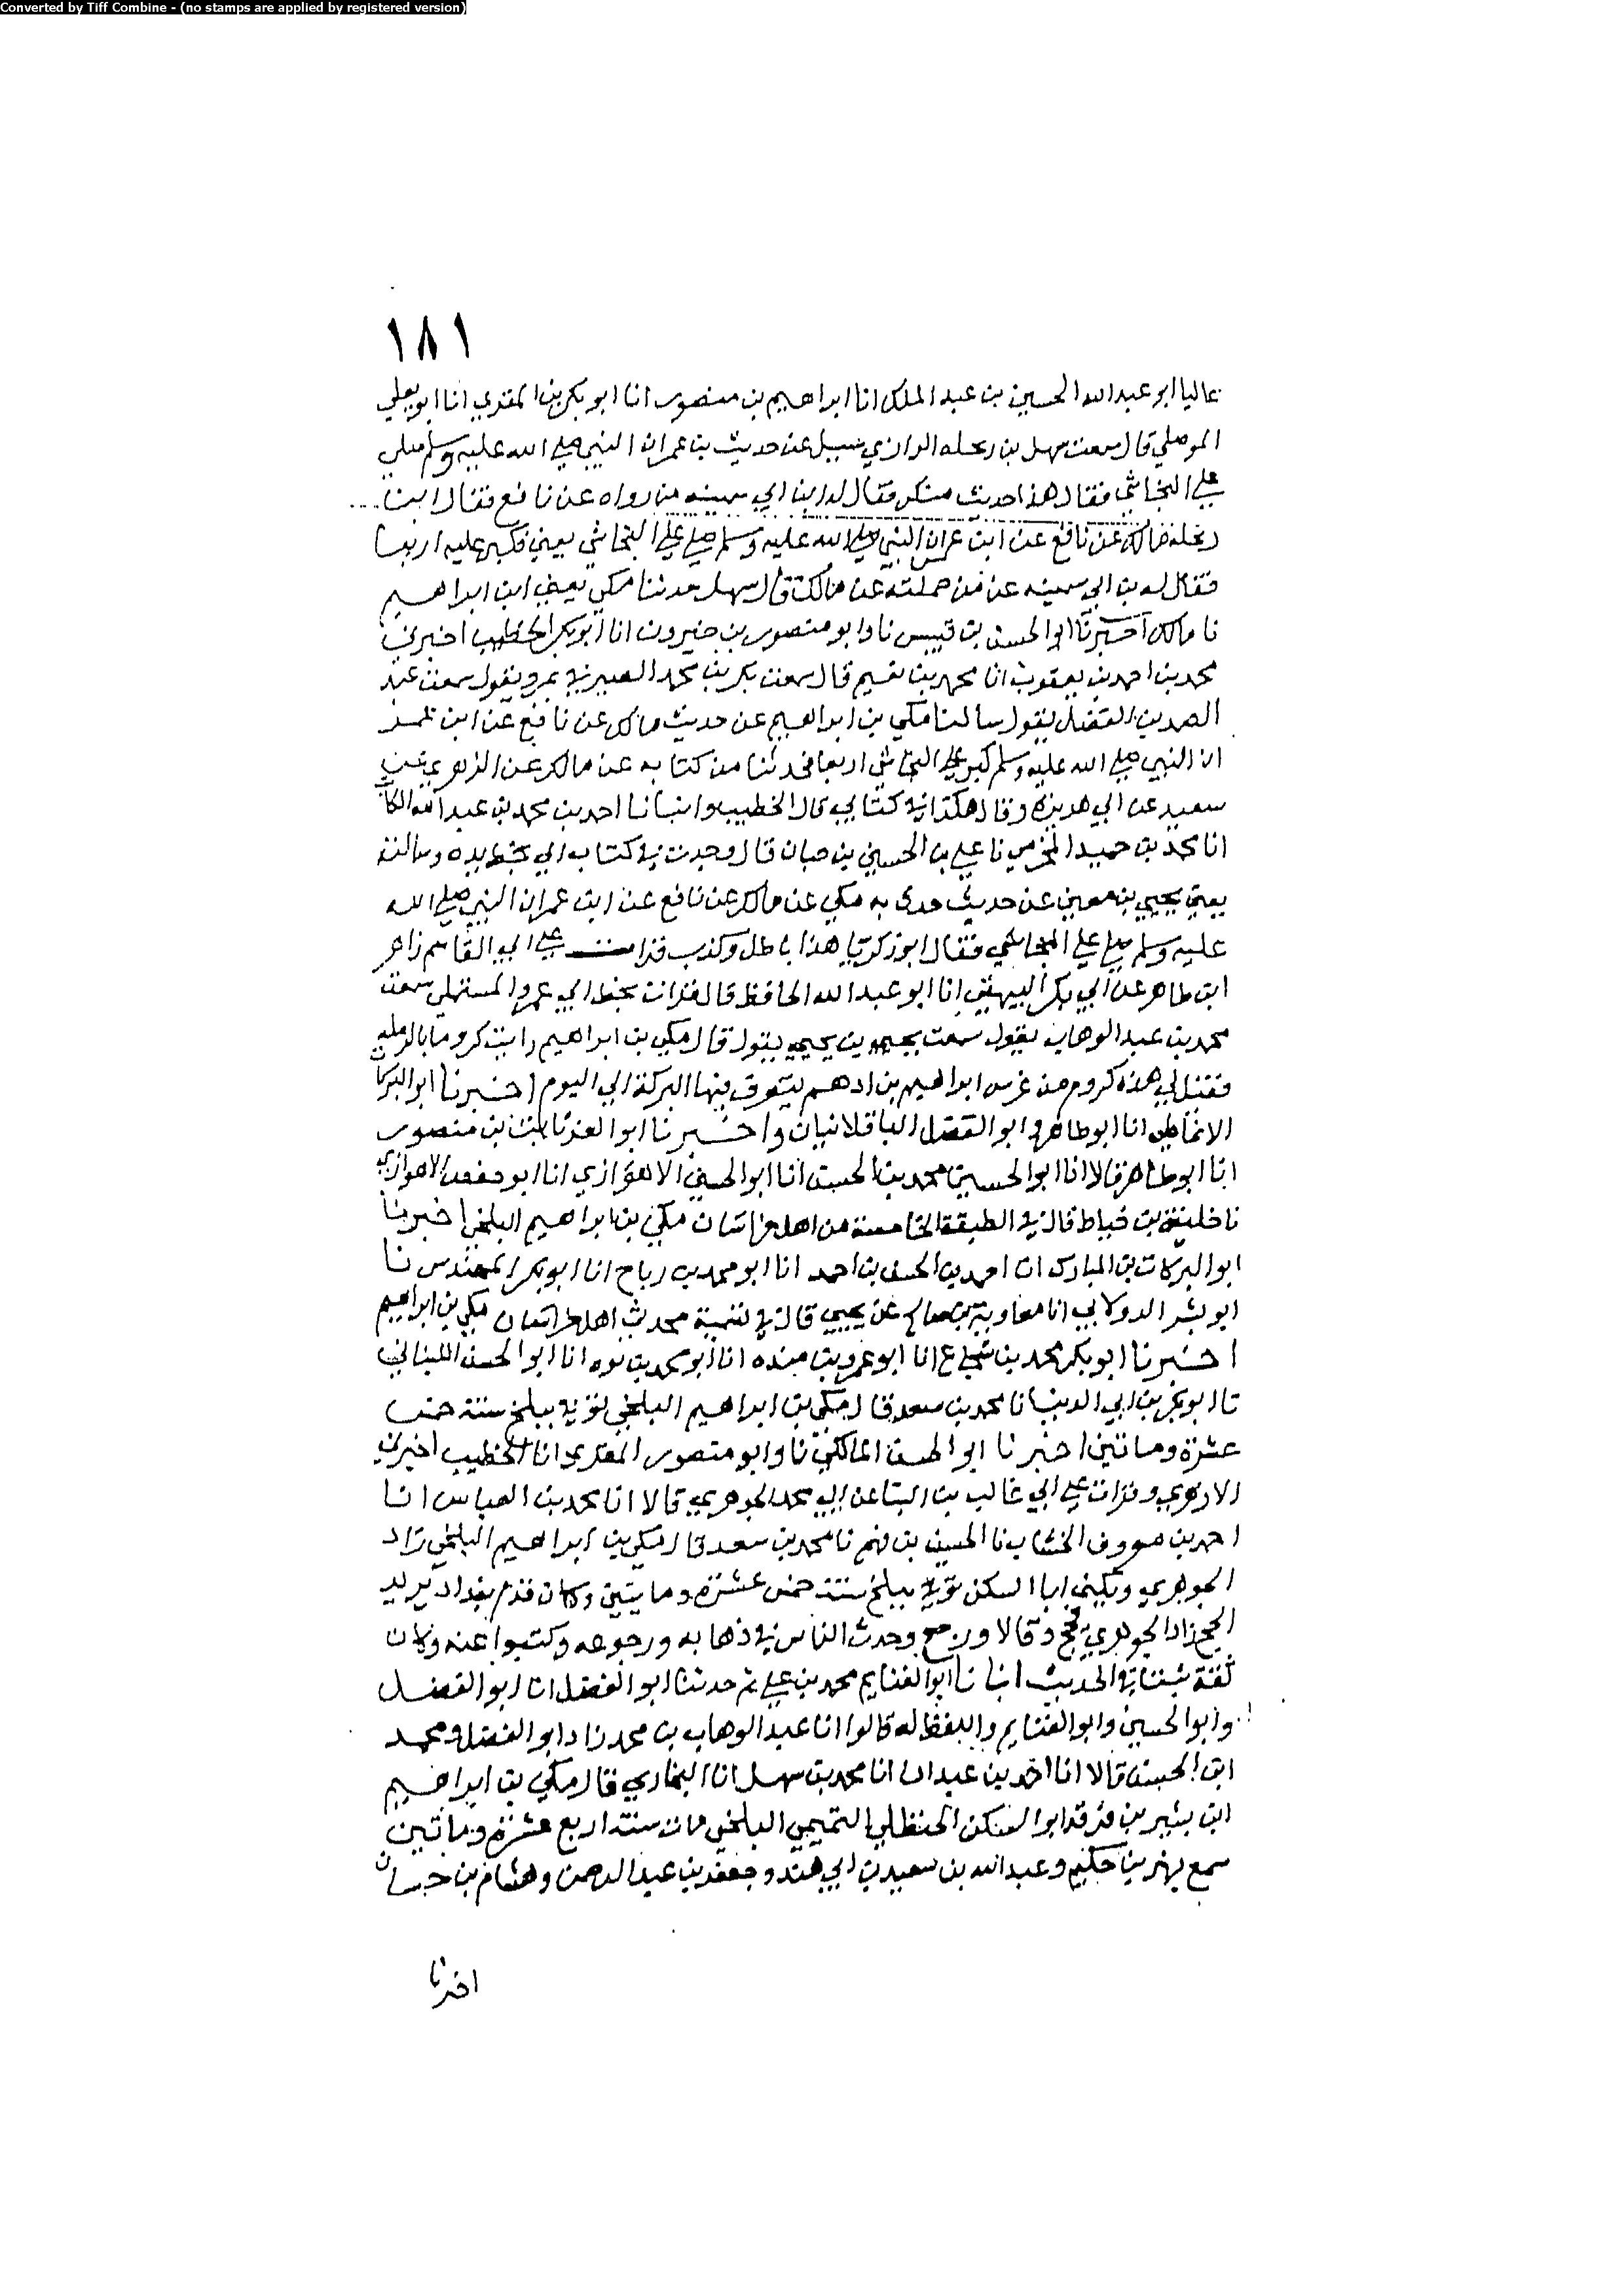 Converted by Tiff Combine - (no stamps are applied by registered version)
١٨١
عاليا ابو عبد الله الحسين بن عبد الملك انا ابراهيم بن منصور انا ابو بكر بن المقري انا ابو يعلي
الموصلي قال سمعت سهل بن زنجله الرازي سيل عن حديث بن عمر ان النبي صلى الله عليه وسلم صلي
علي النجاشي فقال هذا حديث منكر فقال له ابن ابي سمينه من رواه عن نافع فقال ابن
زنجله مالك عن نافع عن ابن عمر ان النبي صلى الله عليه وسلم صلي علي النجاشي يعني فكبر عليه اربعا
فقال له بن ابي سمينه عن من حملته عن مالك قال سهل حدثنا مكي يعني ابن ابراهيم
نا مالك اخبرنا ابو الحسن بن قبيس نا وابو منصور بن خيرون انا ابو بكر الخطيب اخبرني
محمد بن احمد بن يعقوب انا محمد بن نعيم قال سمعت بكر بن محمد الصيرفي بمرو يقول سمعت عبد
الصمد بن الفضل يقول سالنا مكي بن ابراهيم عن حديث مالك عن نافع عن ابن عمر
ان النبي صلى الله عليه وسلم كبر علي النجاشي اربعا فحدثنا من كتابه عن مالك عن الزهري عن
سعيد عن ابي هريرة وقال هكذا في كتابي قال الخطيب وانبانا احمد بن محمد بن عبد الله الكاتب
انا محمد بن حميد المخرمي نا علي بن الحسين بن حبان قال وجدت في كتاب ابي بخط يده وسالته
يعني يحيي بن معين عن حديث حدث به مكي عن مالك عن نافع عن ابن عمر ان النبي صلى الله
عليه وسلم صلي علي النجاشي فقال ابو زكريا هذا باطل وكذب قرات علي ابي القاسم زاهر
ابن طاهر عن ابي بكر البيهقي انا ابو عبد الله الحافظ قال قرات بخط ابي عمرو المستملي سمعت
محمد بن عبد الوهاب يقول سمعت يحيي بن يحيي يقول قال مكي بن ابراهيم رايت كروما بالرمله
فقيل لي هذه كروم من غرس ابراهيم بن ادهم يتعرف فيها البركة الي اليوم اخبرنا ابو البركات
الانماطي انا ابو طاهر وابو الفضل الباقلانيان واخبرنا ابو العز ثابت بن منصور
انا ابو طاهر قالا انا ابو الحسين محمد بن الحسن انا ابو الحسين الاهوازي انا ابو حفص الاهوازي
نا خليفة بن خياط قال في الطبقة الخامسة من اهل خراسان مكي بن ابراهيم البلخي اخبرنا
ابو البركات بن المبارك انا احمد بن الحسن بن احمد انا ابو محمد بن رباح انا ابو بكر المهندس نا
ابو بشر الدولابي انا معاوية بن صالح عن يحيي قال في تسمية محدثي اهل خراسان مكي بن ابراهيم
اخبرنا ابو بكر محمد بن شجاع انا ابو عمرو بن منده انا ابو محمد بن يوه انا ابو الحسن اللبناني
نا ابو بكر بن ابي الدنيا نا محمد بن سعد قال مكي بن ابراهيم البلخي توفي ببلخ سنة خمس
عشرة وماتين اخبرنا ابو الحسن المالكي نا وابو منصور المقري انا الخطيب اخبرني
الازهري وقرات علي ابي غالب بن البنا عن ابي محمد الجوهري قالا انا محمد بن العباس انا
احمد بن معروف الخشاب نا الحسين بن فهم نا محمد بن سعد قال مكي بن ابراهيم البلخي زاد
الجوهري ويكني ابا السكن توفي ببلخ سنة خمس عشرة وماتين وكان قدم بغداد يريد
الحج زاد الجوهري فحج وقالا ورجع وحدث الناس في ذهابه ورجوعه وكتبوا عنه وكان
ثقة ثبتا في الحديث انبانا ابو الغنايم محمد بن علي ثم حدثنا ابو الفضل انا ابو الفضل
وابو الحسين وابو الغنايم واللفظ له قالوا انا عبد الوهاب بن محمد زاد ابو الفضل ومحمد
ابن الحسن قالا انا احمد بن عبدان انا محمد بن سهل انا البخاري قال مكي بن ابراهيم
ابن بشير بن فرقد ابو السكن الحنظلي التميمي البلخي مات سنة اربع عشرة وماتين
سمع بهز بن حكيم وعبد الله بن سعيد بن ابي هند وجعفر بن عبد الرحمن وهشام بن حسان
اخبرنا